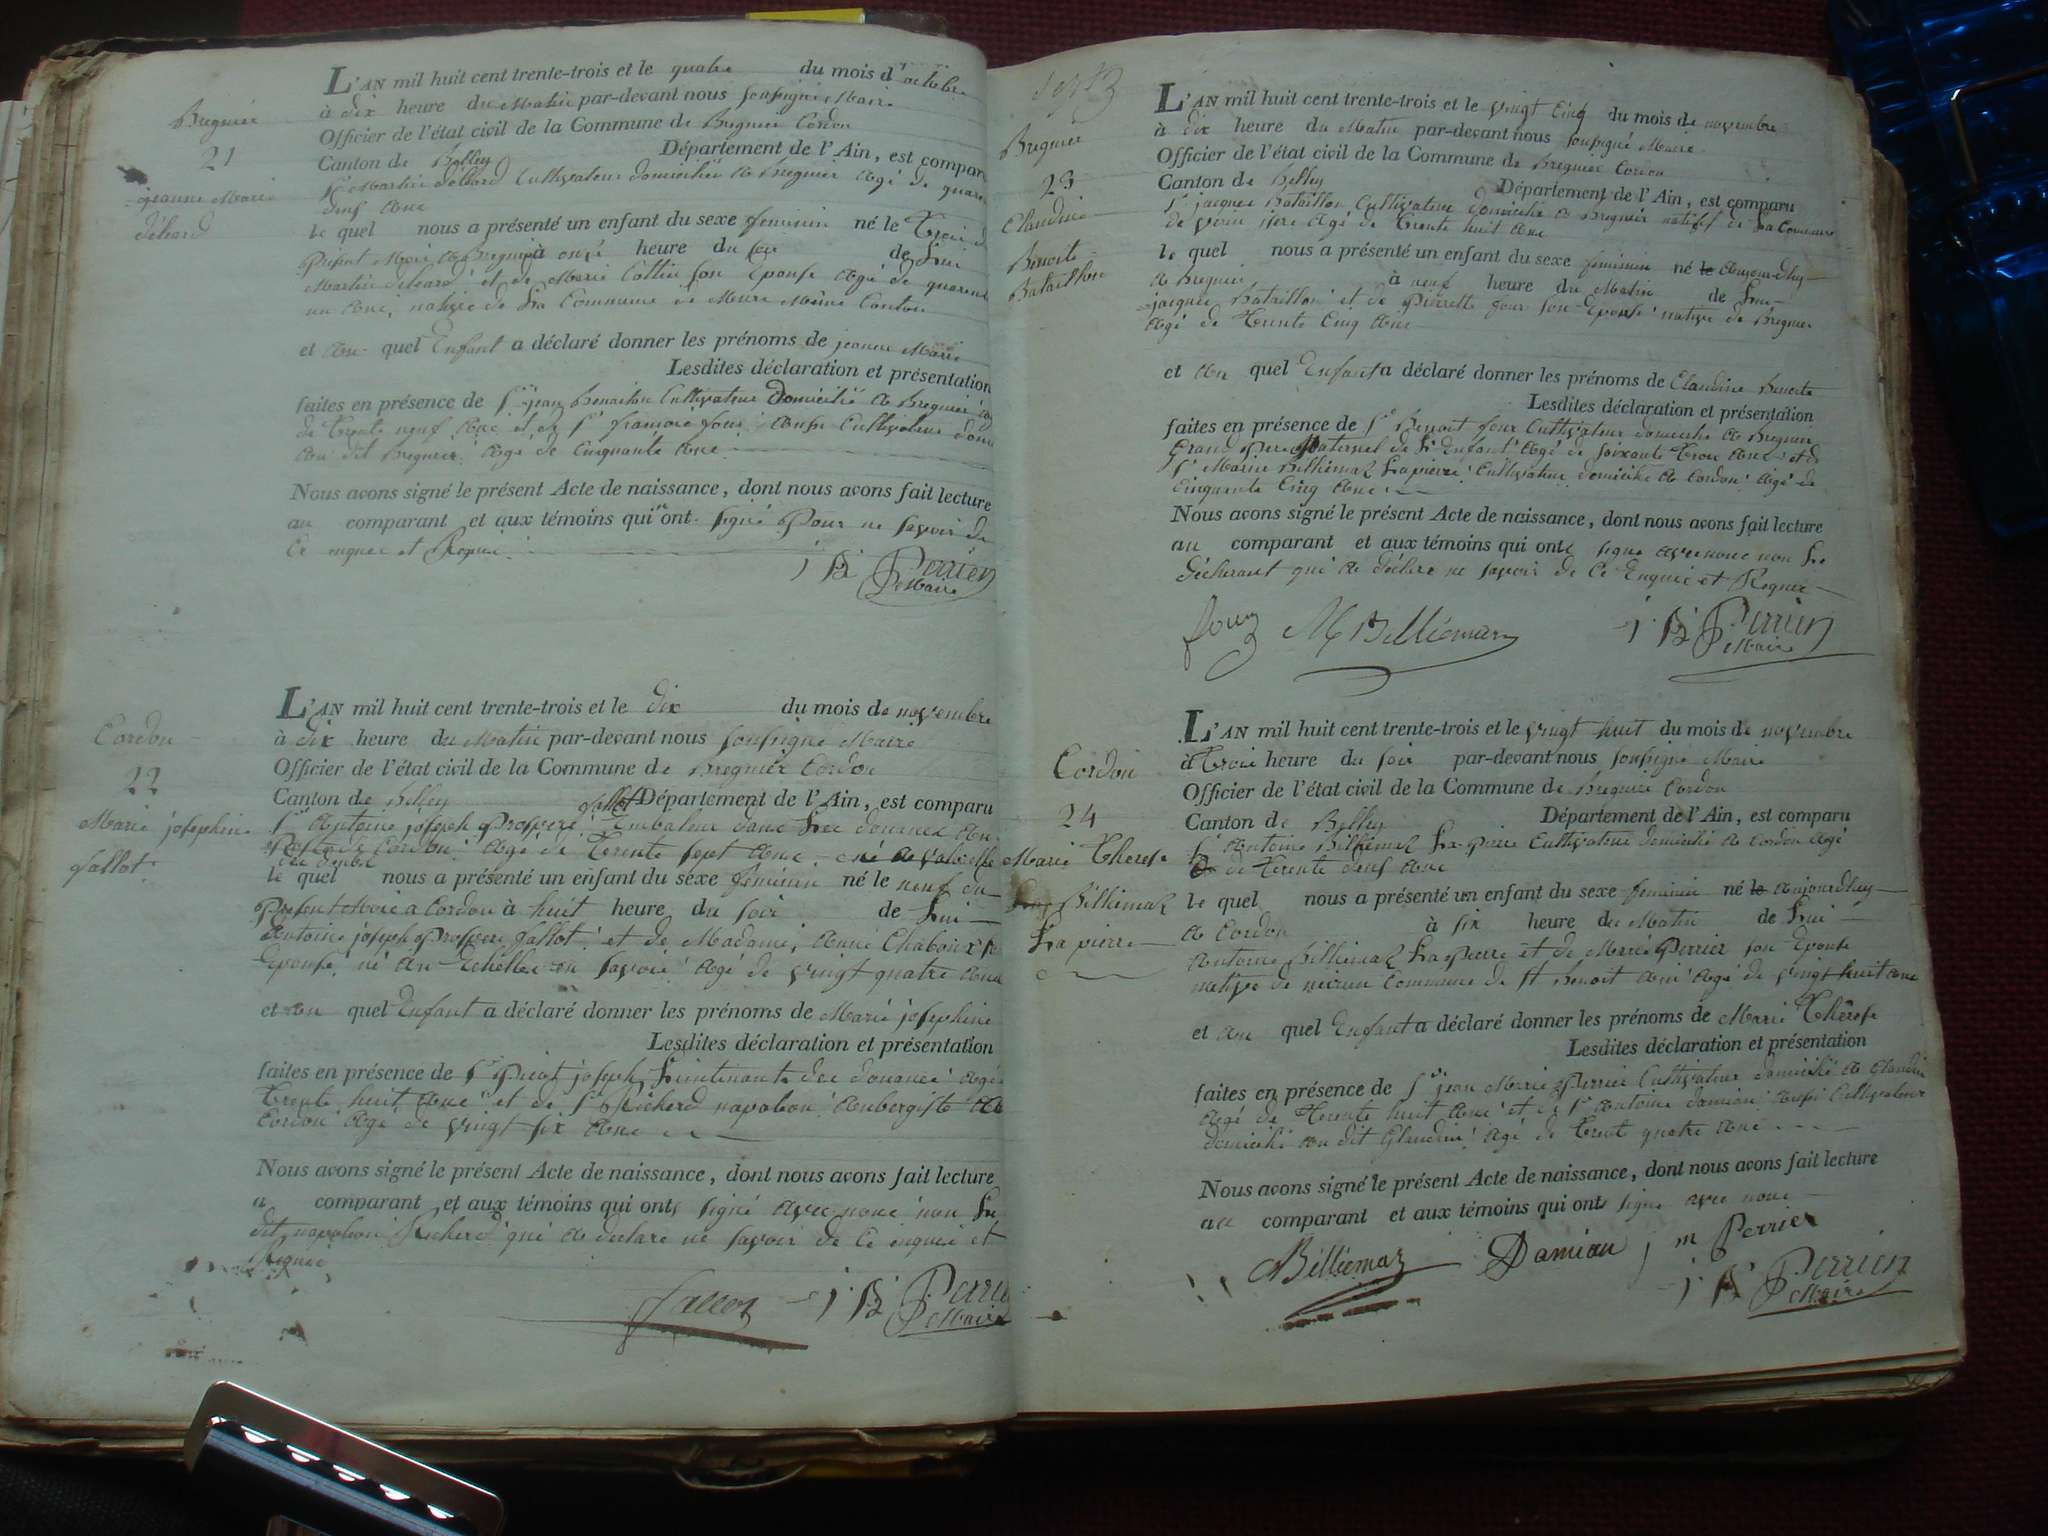 Bregnier
21
jeanne Marie
L'AN mil huit cent trente-trois et le quatre du mois d'octobre
à dix heure du Matin par-devant nous soussigné Maire
Officier de l'état civil de la Commune de Bregnier Cordon
Canton de Belley Département de l'Ain, est compar
Sr Martin cultivateur domicilié a Bregnier agé de quaran
deux ans
le quel nous a présenté un enfant du sexe feminin né le trois d
présent Mois a Bregnier à onze heure du soir de Lui
Martin et de Marie son Epouse agé de quarent
un ans, native de La Commune de Murs Même Canton
et au quel Enfant a déclaré donner les prénoms de jeanne Marie
Lesdites déclaration et présentation
faites en présence de Sr jean Cultivateur Domicilié a Bregnier
de trente neuf ans et de Sr françois aussi Cultivateur dom
au dit Bregnier agé de Cinquante ans
Nous avons signé le présent Acte de naissance, dont nous avons fait lecture
au comparant et aux témoins qui n'ont signé Pour ne savoir de
Ce enquis et Requis
j B Perrier
Maire
Cordon
22
Marie josephine
fallot
L'AN mil huit cent trente-trois et le dix du mois de novembre
à dix heure du Matin par-devant nous soussigné Maire
Officier de l'état civil de la Commune de Bregnier Cordon
Canton de Belley fallot Département de l'Ain, est comparu
Sr Antoine joseph Prospere Embaleur dans Les douanes au
de Cordon agé de trente sept ans né a
le quel nous a présenté un enfant du sexe feminin né le neuf du
présent Mois a Cordon à huit heure du soir de Lui
Antoine joseph Prospere fallot et de Madame, Anne
Epouse, né au Echelles en Savoie agé de vingt quatre ans
et au quel Enfant a déclaré donner les prénoms de Marie josephine
Lesdites déclaration et présentation
faites en présence de Sr joseph Lieutenant des douanes agé
trente huit ans et de Sr Richerd napoleon Aubergiste a
Cordon agé de vingt six ans
Nous avons signé le présent Acte de naissance, dont nous avons fait lecture
a comparant et aux témoins qui ont signé avec nous non Le
dit napoleon Richerd qui a declaré ne savoir de Ce enquis et
Requis
j B Perrier
Maire
Bregnier
23
Claudine
Benoite
Bataillon
L'AN mil huit cent trente-trois et le vingt Cinq du mois de novembre
à dix heure du Matin par-devant nous soussigné Maire
Officier de l'état civil de la Commune de Bregnier Cordon
Canton de Belley Département de l'Ain, est comparu
Sr jacques Bataillon Cultivateur domicilié a Bregnier natif de La Commune
de agé de trente huit ans
le quel nous a présenté un enfant du sexe feminin né le aujourdhuy
a Bregnier à neuf heure du Matin de Lui
jacques Bataillon et de Pierrette four son Epouse native de Bregnier
agé de trente Cinq ans
et au quel Enfant a déclaré donner les prénoms de Claudine Benoite
Lesdites déclaration et présentation
faites en présence de Sr Benoit four Cultivateur domicilié a Bregnier
Grand Pere Maternel de L'Enfant agé de soixante trois ans et d
Sr Marin Billiemaz Lapierre Cultivateur domicilié a Cordon agé de
Cinquante Cinq ans
Nous avons signé le présent Acte de naissance, dont nous avons fait lecture
au comparant et aux témoins qui ont signé avec nous non Le
déclarant qui a déclaré ne savoir de Ce Enquis et Requis
four M Billiemaz j B Perrier
Maire
Cordon
24
Marie Therese
Billiemaz
Lapierre
L'AN mil huit cent trente-trois et le vingt huit du mois de novembre
à trois heure du soir par-devant nous soussigné Maire
Officier de l'état civil de la Commune de Bregnier Cordon
Canton de Belley Département de l'Ain, est comparu
Sr Antoine Billiemaz Lapierre Cultivateur domicilié a Cordon agé
de trente deux ans
le quel nous a présenté un enfant du sexe feminin né le aujourdhuy
a Cordon à six heure du Matin de Lui
Antoine Billiemaz Lapierre et de Marie Perrier son Epouse
native de Commune de St Benoit agé de vingt huit ans
et au quel Enfant a déclaré donner les prénoms de Marie Thérese
Lesdites déclaration et présentation
faites en présence de Sr jean Marie Perrier Cultivateur domicilié a Glandin
agé de trente huit ans et de Sr Antoine damian aussi Cultivateur
domicilié au dit Glandin agé de trent quatre ans
Nous avons signé le présent Acte de naissance, dont nous avons fait lecture
au comparant et aux témoins qui ont signé avec nous
Billiemaz Damian j m Perrier
j B Perrier
Maire